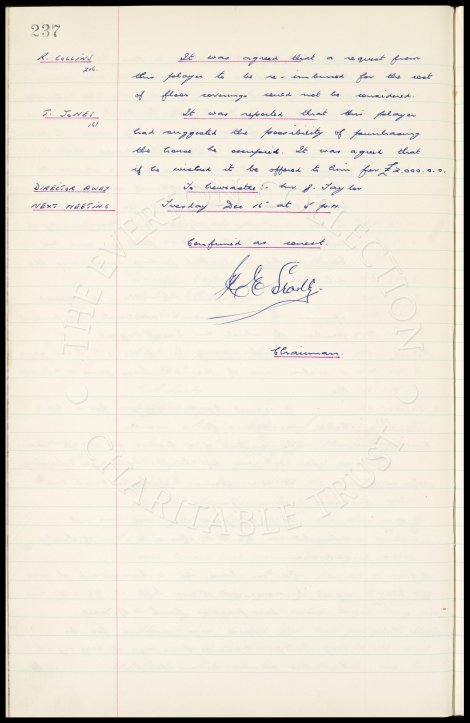 237
R. COLLINS It was agreed that a request from
216 this player to be re-imbursed for the cost
of floor coverings could not be considered.
T. JONES It was reported that this player
161 had suggested the possibility of purchasing
the house he occupied. It was agreed that
if he wished it be offered to him for £2.000.0.0.
DIRECTOR AWAY To Newcastle:- Mr J. Taylor
NEXT MEETING Tuesday Dec 15 at 5 p.m.
Confirmed as correct
Chairman
THE EVERTON COLLECTION
CHARITABLE TRUST